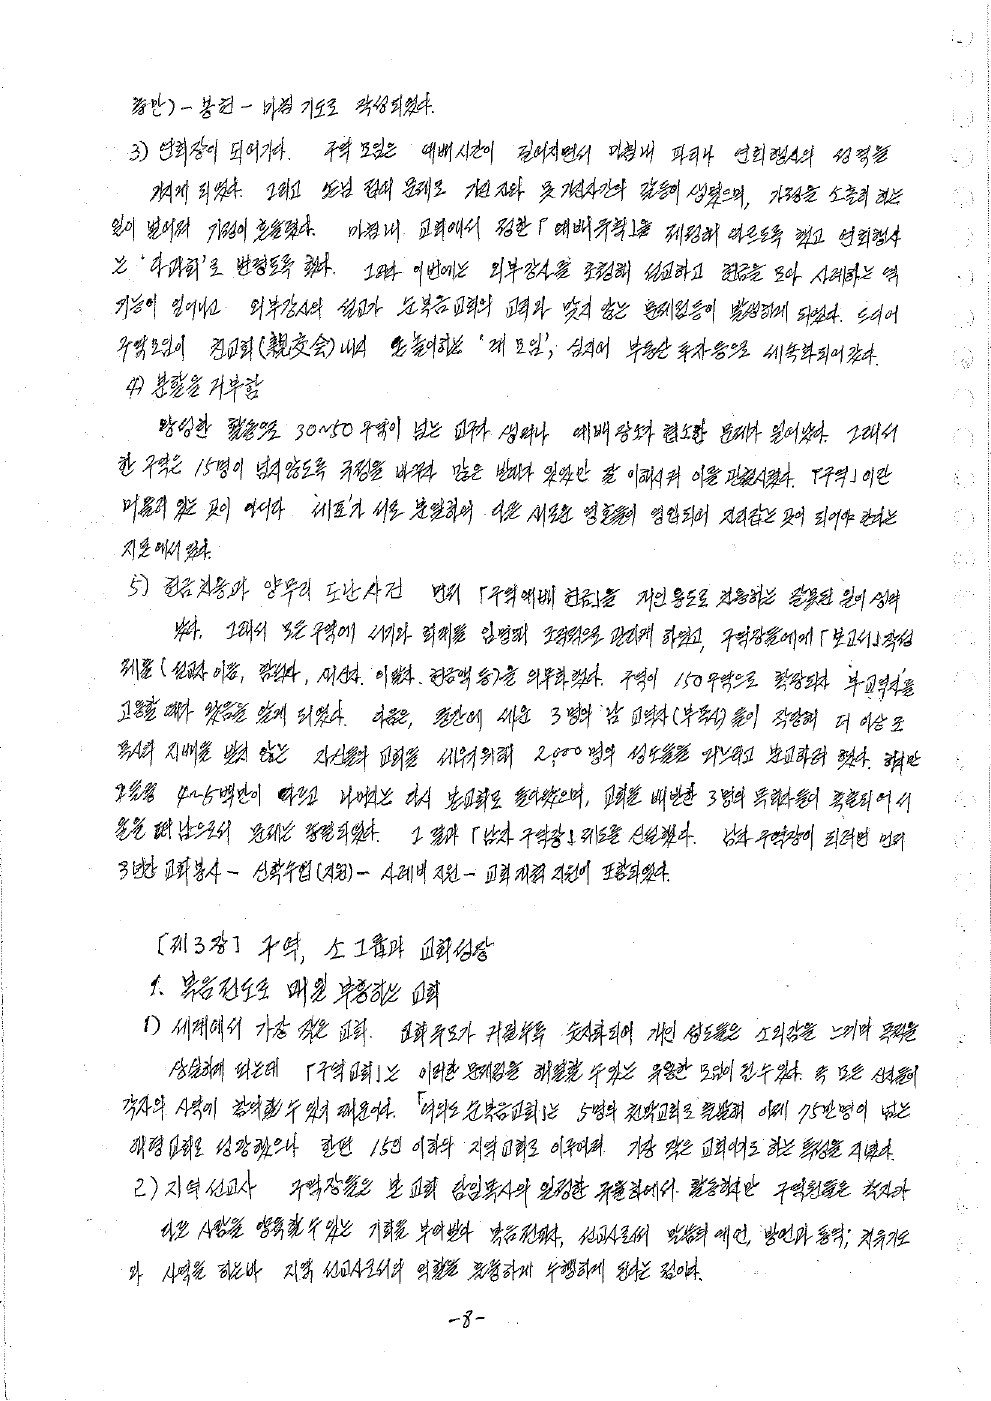 등만) - 봉헌 - 마침 기도로 작성되었다.
3) 연회장이 되어가다. 구역 모임은 예배시간이 길어지면서 마침내 파티나 연회행사의 성격을
가지게 되었다. 그리고 손님 접대 문제로 가진 자와 못 가진자간의 갈등이 생겼으며, 가정을 소홀히 하는
일이 벌어져 기강이 흔들렸다. 마침내 교회에서 정한 「예배수칙」을 제정해 따르도록 했고 연회행사
는 '다과회'로 변경토록 했다. 그러나 이번에는 외부강사를 초청해 설교하고 헌금을 모아 사례하는 역
기능이 일어나고 외부강사의 설교가 순복음교회의 교리와 맞지 않는 문제점등이 발생하게 되었다. 드디어
구역모임이 친교회(親交会)내지 먹고 놀이하는 '계 모임', 심지어 부동산 투자 등으로 세속화되어 갔다.
4) 분할을 거부함
왕성한 활동으로 30~50 구역이 넘는 교구가 생겨나 예배장소가 협소한 문제가 일어났다. 그래서
한 구역은 15명이 넘지않도록 규정을 바꾸자 많은 반대가 있었으나 잘 이해시켜 이를 관철시켰다. 「구역」이란
머물러 있는 곳이 아니라 '세포'가 서로 분열하여 다른 새로운 영혼들이 영입되어 자리잡는 곳이 되어야 한다는
지론에서 였다.
5) 헌금전용과 양무리 도난사건 먼저 「구역예배 헌금」을 개인용도로 전용하는 잘못된 일이 생겨
났다. 그래서 모든구역에 서기와 회계를 임명해 조직적으로 관리케 하였고, 구역장들에게 「보고서」작성
제를 (설교자 이름, 참석자, 시신자, 이탈자, 헌금액 등)을 의무화 했다. 구역이 150구역으로 확장되자 '부교역자'를
고용할 때가 왔음을 알게 되었다. 처음은, 불만에 세운 3명의 남 교역자(부목사)들이 작당해 더 이상 조
목사의 지배를 받지 않는 자신들의 교회를 세우기위해 2,000명의 성도들을 거느리고 분교하려 했다. 하지만
그들을 4~5백만이 따르고 나머지는 다시 본교회로 돌아왔으며, 교회를 배반한 3명의 목회자들이 축출되어 서
울을 떠남으로서 문제는 종결되었다. 그 결과 「남자 구역장」제도를 신설했다. 남자 구역장이 되려면 먼저
3년간 교회봉사 - 신학수업(지원) - 사례비 지원 - 교회개척 지원이 포함되었다.
[제3장] 구역, 소그룹과 교회성장
1. 복음전도로 매일 부흥하는 교회
1) 세계에서 가장 작은 교회. 교회규모가 커질수록 숫자화되어 개인 성도들은 소외감을 느끼며 목적을
상실하게 되는데 「구역교회」는 이러한 문제점을 해결할 수 있는 유용한 모임이 될 수 있다. 즉 모든 신자들이
각자의 사역에 참여할 수 있기 때문이다. 「여의도 순복음교회」는 5명의 천막교회로 출발해 이제 75만명이 넘는
대형교회로 성장했으나 한편 15인 이하의 지역교회로 이루어져 가장 작은 교회이기도 하는 특성을 지녔다.
2) 지역 선교사 구역장들은 본 교회 담임목사의 일정한 규율하에서 활동하지만 구역원들은 각자가
다른 사람을 양육할 수 있는 기회를 부여받아 복음전파자, 선교사로서 말씀의 예언, 방언과 통역, 치유기도
와 사역을 하는바 지역 선교사로서의 역할을 훌륭하게 수행하게 된다는 점이다.
-8-